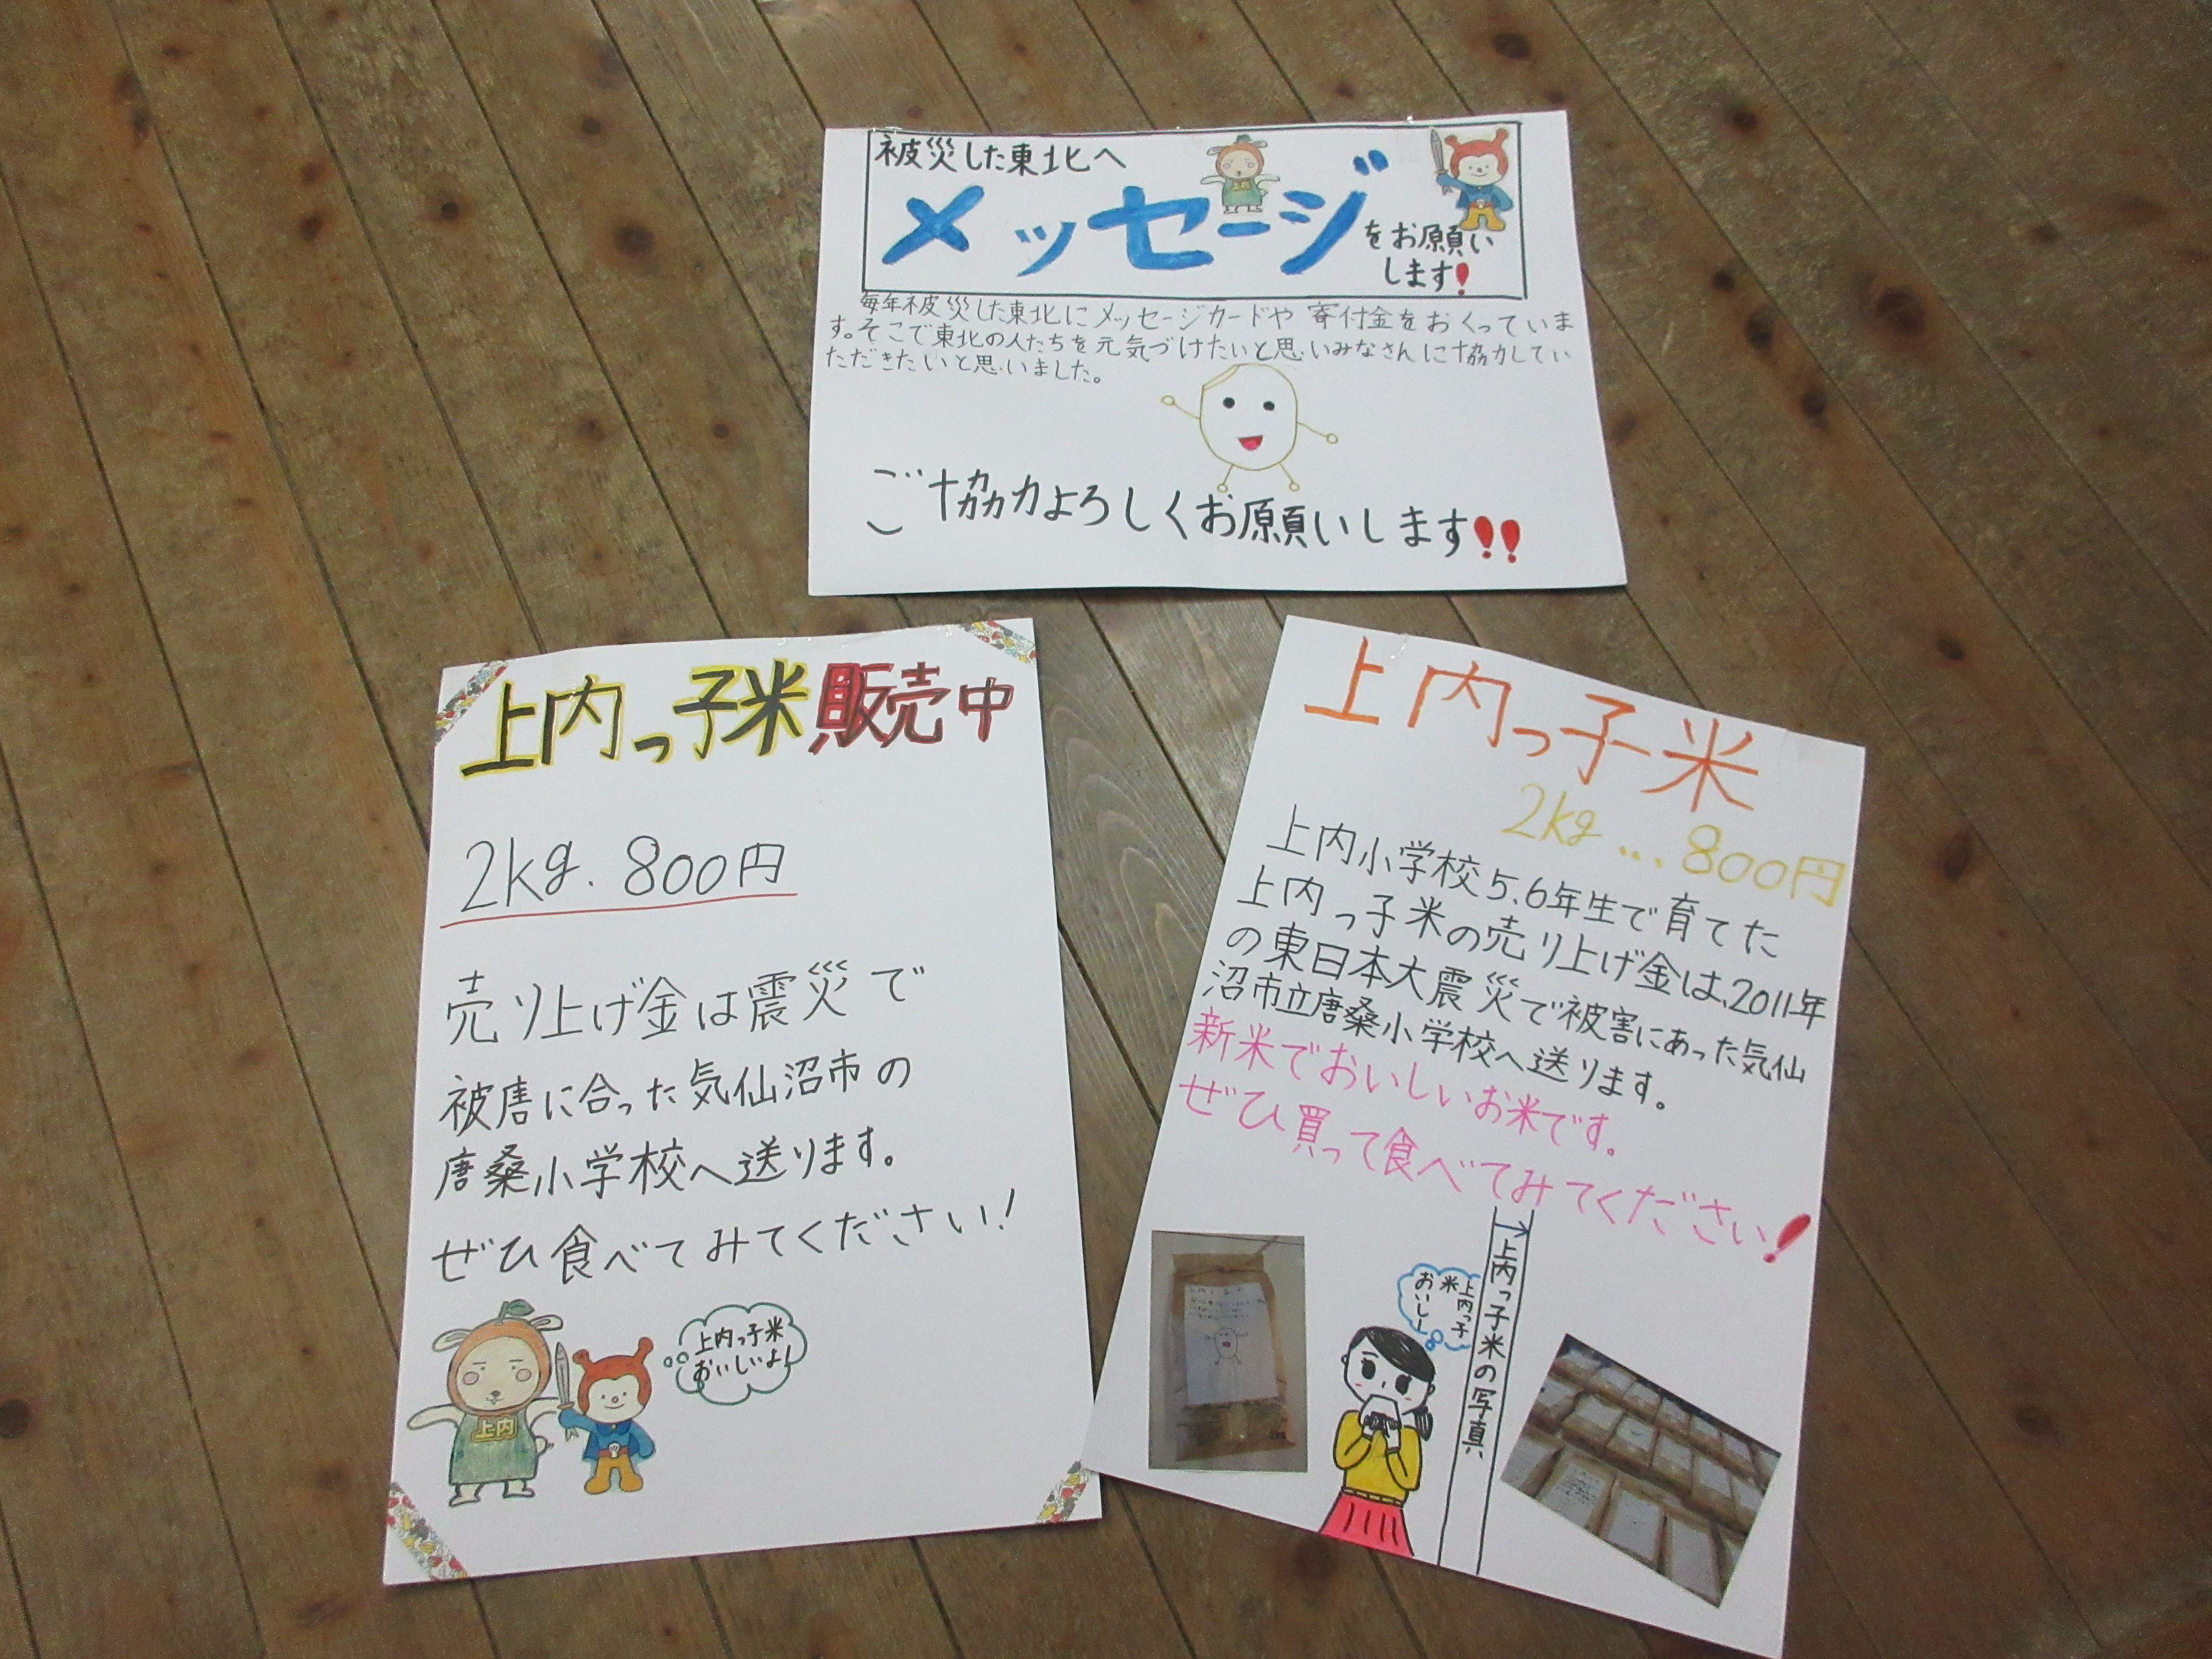 被災した東北へ
メッセージ
をお願い
します!
毎年被災した東北にメッセージカードや寄付金をおくっていま
す。そこで東北の人たちを元気づけたいと思いみなさんに協力してい
ただきたいと思いました。
ご協力よろしくお願いします!!
上内っ子米販売中
2kg. 800円
売り上げ金は震災で
被害に合った気仙沼市の
唐桑小学校へ送ります。
ぜひ食べてみてください!
上内っ子米
おいしいよ!
上内
上内っ子米
2kg...800円
上内小学校5.6年生で育てた
上内っ子米の売り上げ金は、2011年
の東日本大震災で被害にあった気仙
沼市立唐桑小学校へ送ります。
新米でおいしいお米です。
ぜひ買って食べてみてください!
上内っ子
米
おいしー
→上内っ子米の写真